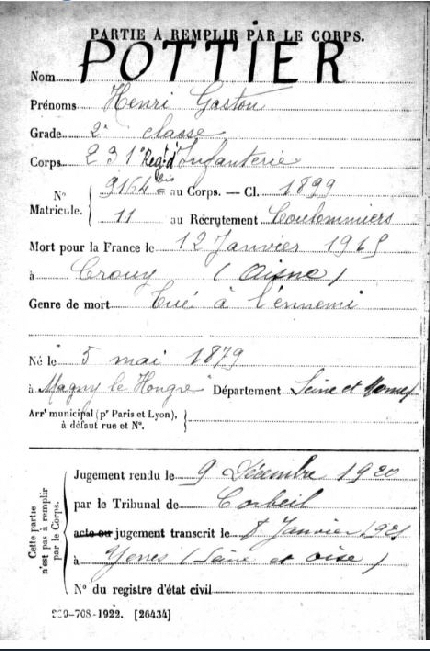 PARTIE A REMPLIR PAR LE CORPS.
Nom POTTIER
Prénoms Henri Gaston
Grade 2e classe
Corps 231e Regt d'Infanterie
N° Matricule. { 9164 bis au Corps. — Cl. 1899
11 au Recrutement Coulommiers
Mort pour la France le 12 Janvier 1915
à Crouy (Aisne)
Genre de mort Tué à l'ennemi
Né le 5 mai 1879
à Magny le Hongre Département Seine et Marne
Arrt municipal (pr Paris et Lyon), à défaut rue et N°.
Cette partie n'est pas à remplir par le Corps.
Jugement rendu le 9 Décembre 1920
par le Tribunal de Corbeil
acte ou jugement transcrit le 8 Janvier 1921
à Yerres (Seine et Oise)
N° du registre d'état civil
-708-1922. [26434]